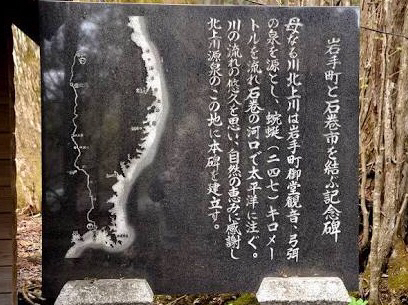 岩手町と石巻市を結ぶ記念碑
母なる川北上川は岩手町御堂観音、弓弭
の泉を源とし、蜿蜒（二四七）キロメー
トルを流れ石巻の河口で太平洋に注ぐ。
川の流れの悠久を思い、自然の恵みに感謝し
北上川源泉のこの地に本碑を建立す。